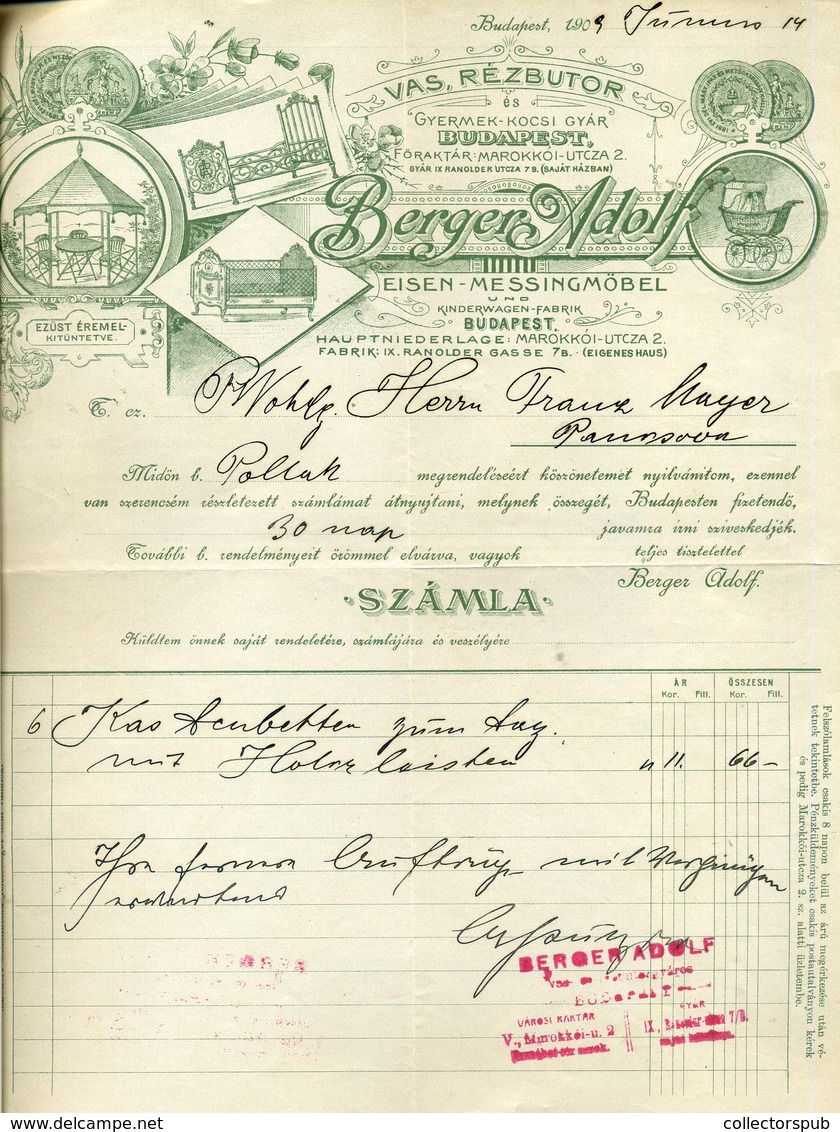 Budapest, 1909 Június 14
VAS, RÉZBUTOR
és
GYERMEK-KOCSI GYÁR
BUDAPEST,
FŐRAKTÁR: MAROKKÓI-UTCZA 2.
GYÁR IX RANOLDER UTCZA 7 B. (SAJÁT HÁZBAN)
Berger Adolf
EISEN-MESSINGMÖBEL
UND
KINDERWAGEN-FABRIK
BUDAPEST,
HAUPTNIEDERLAGE: MAROKKÓI-UTCZA 2.
FABRIK: IX. RANOLDER GASSE 7B. (EIGENES HAUS)
EZÜST ÉREMEL-
KITÜNTETVE.
T. cz. Wohlg. Herrn Franz Mayer
Pancsova
Midőn b. Pollak megrendeléseért köszönetemet nyilvánitom, ezennel
van szerencsém részletezett számlámat átnyujtani, melynek összegét, Budapesten fizetendő,
30 nap javamra irni sziveskedjék.
További b. rendelményeit örömmel elvárva, vagyok teljes tisztelettel
Berger Adolf.
SZÁMLA
Küldtem önnek saját rendeletére, számlájára és veszélyére
ÁR ÖSSZESEN
Kor. Fill. Kor. Fill.
6 zum
mit Holz leisten 11. 66-
Ihre ferneren mit Vergnügen
erwartend
BERGER ADOLF
BUDAPEST
VÁROSI RAKTÁR GYÁR
V., Marokkói-u. 2 IX., 7/B.
Felszólamlások csakis 8 napon belül az árú megérkezése után vé-
tetnek tekintetbe. Pénzküldeményeket csakis postautalványon kérek
és pedig Marokkói-utcza 2. sz. alatti üzletembe.
collectorspub